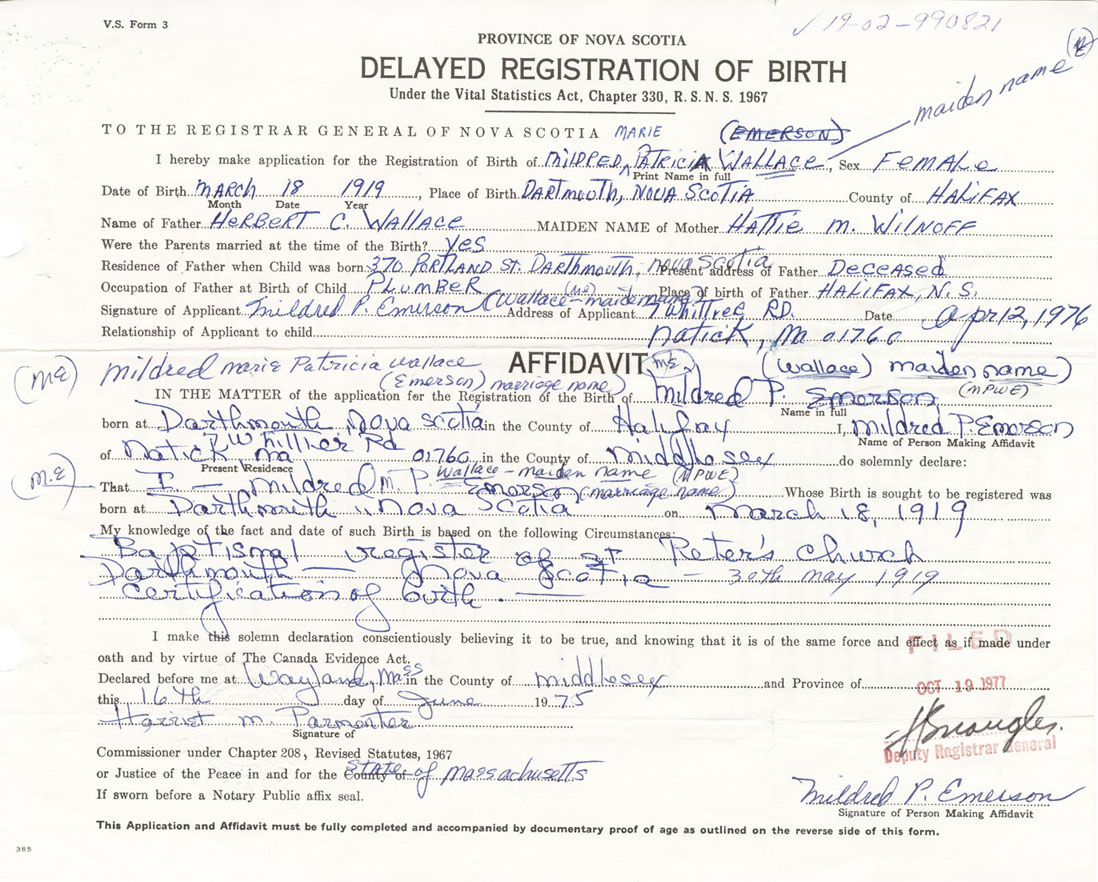 V.S. Form 3
19-02-990821
PROVINCE OF NOVA SCOTIA
DELAYED REGISTRATION OF BIRTH
Under the Vital Statistics Act, Chapter 330, R.S.N.S. 1967
maiden name
TO THE REGISTRAR GENERAL OF NOVA SCOTIA MARIE (EMERSON)
I hereby make application for the Registration of Birth of MILDRED PATRICIA WALLACE, Sex FEMALE
Print Name in full
Date of Birth MARCH 18 1919, Place of Birth DARTMOUTH, NOVA SCOTIA County of HALIFAX
Month Date Year
Name of Father HERBERT C. WALLACE MAIDEN NAME of Mother HATTIE M. WILNOFF
Were the Parents married at the time of the Birth? yes
Residence of Father when Child was born 370 PORTLAND ST. DARTHMOUTH, nova scotia Present address of Father DECEASED
Occupation of Father at Birth of Child PLUMBER (ME) Place of birth of Father HALIFAX, N.S.
Signature of Applicant Mildred P. Emerson (Wallace-maiden name) Address of Applicant 7 Whittree RD. Date Apr 12, 1976
Relationship of Applicant to child Natick, Ma 01760
(ME) mildred marie Patricia wallace AFFIDAVIT (ME) (Wallace) maiden name)
(Emerson) marriage name) (MPWE)
IN THE MATTER of the application for the Registration of the Birth of Mildred P. Emerson
Name in full
born at Darthmouth, Nova scotia in the County of Halifax I, Mildred P. Emerson
Name of Person Making Affidavit
of Natick, ma Rd 01760 in the County of Middlesex do solemnly declare:
Present Residence
(M.E) Wallace-maiden name (MPWE)
That I - Mildred M. P Emerson (marriage name) Whose Birth is sought to be registered was
born at Darthmouth, Nova Scotia on March 18, 1919
My knowledge of the fact and date of such Birth is based on the following Circumstances:
Baptismal register of st Peter's church
Darthmouth - Nova Scotia - 30th may 1919
Certification of birth.
I make this solemn declaration conscientiously believing it to be true, and knowing that it is of the same force and effect as if made under
FILED
oath and by virtue of The Canada Evidence Act.
Declared before me at Wayland, Mass in the County of middlesex and Province of
OCT 19 1977
this 16th day of June 1975
Harriet M. Parmenter
Signature of
Deputy Registrar General
Commissioner under Chapter 208, Revised Statutes, 1967
or Justice of the Peace in and for the County of State of Massachusetts
If sworn before a Notary Public affix seal.
Mildred P. Emerson
Signature of Person Making Affidavit
This Application and Affidavit must be fully completed and accompanied by documentary proof of age as outlined on the reverse side of this form.
385